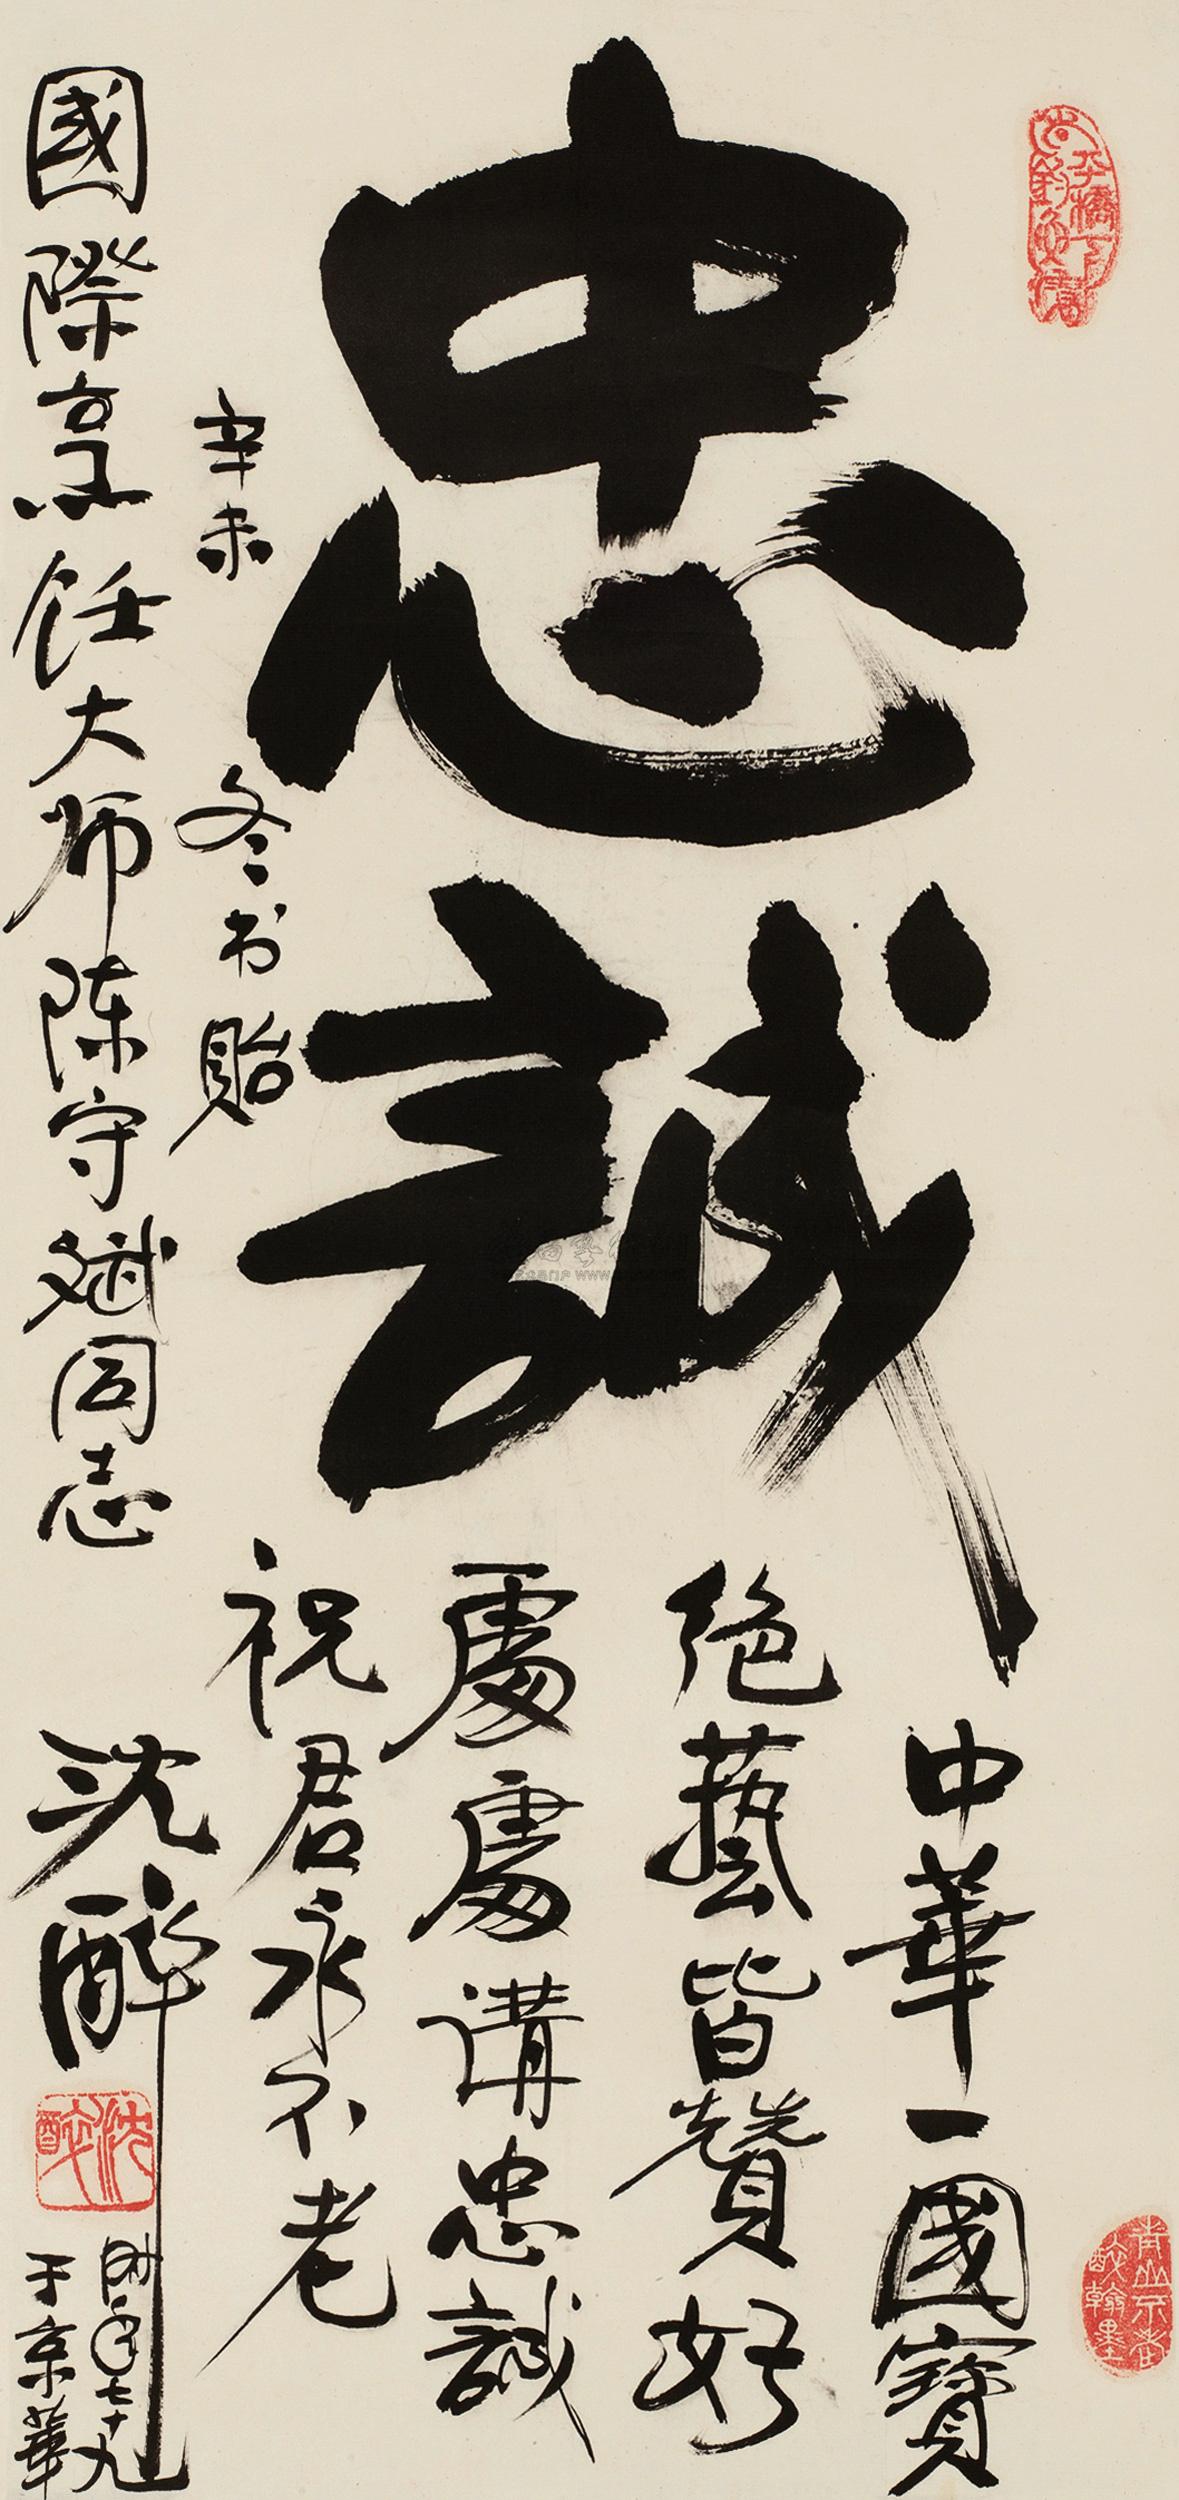 忠誠
中華一國寶
絕藝皆贊好
處處講忠誠
祝君永不老
辛未
冬书貽
國際烹饪大师陈守斌同志
沈醉
时年七十九
于京華
沈醉